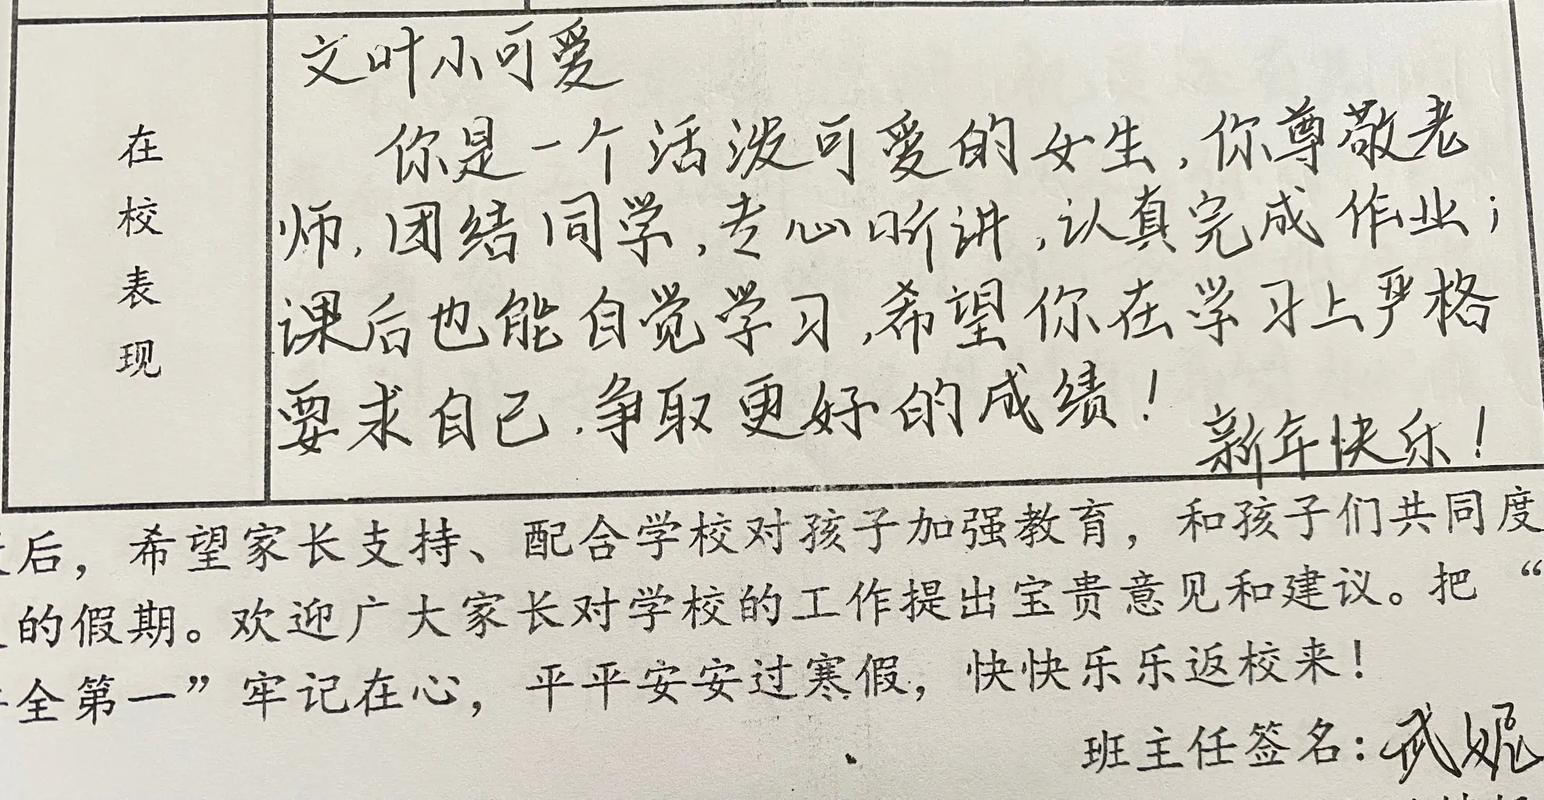 在校表现
文叶小可爱
你是一个活泼可爱的女生,你尊敬老
师,团结同学,专心听讲,认真完成作业;
课后也能自觉学习,希望你在学习上严格
要求自己.争取更好的成绩!
新年快乐!
后,希望家长支持、配合学校对孩子加强教育,和孩子们共同度
的假期。欢迎广大家长对学校的工作提出宝贵意见和建议。把“
全第一”牢记在心,平平安安过寒假,快快乐乐返校来!
班主任签名:武妮